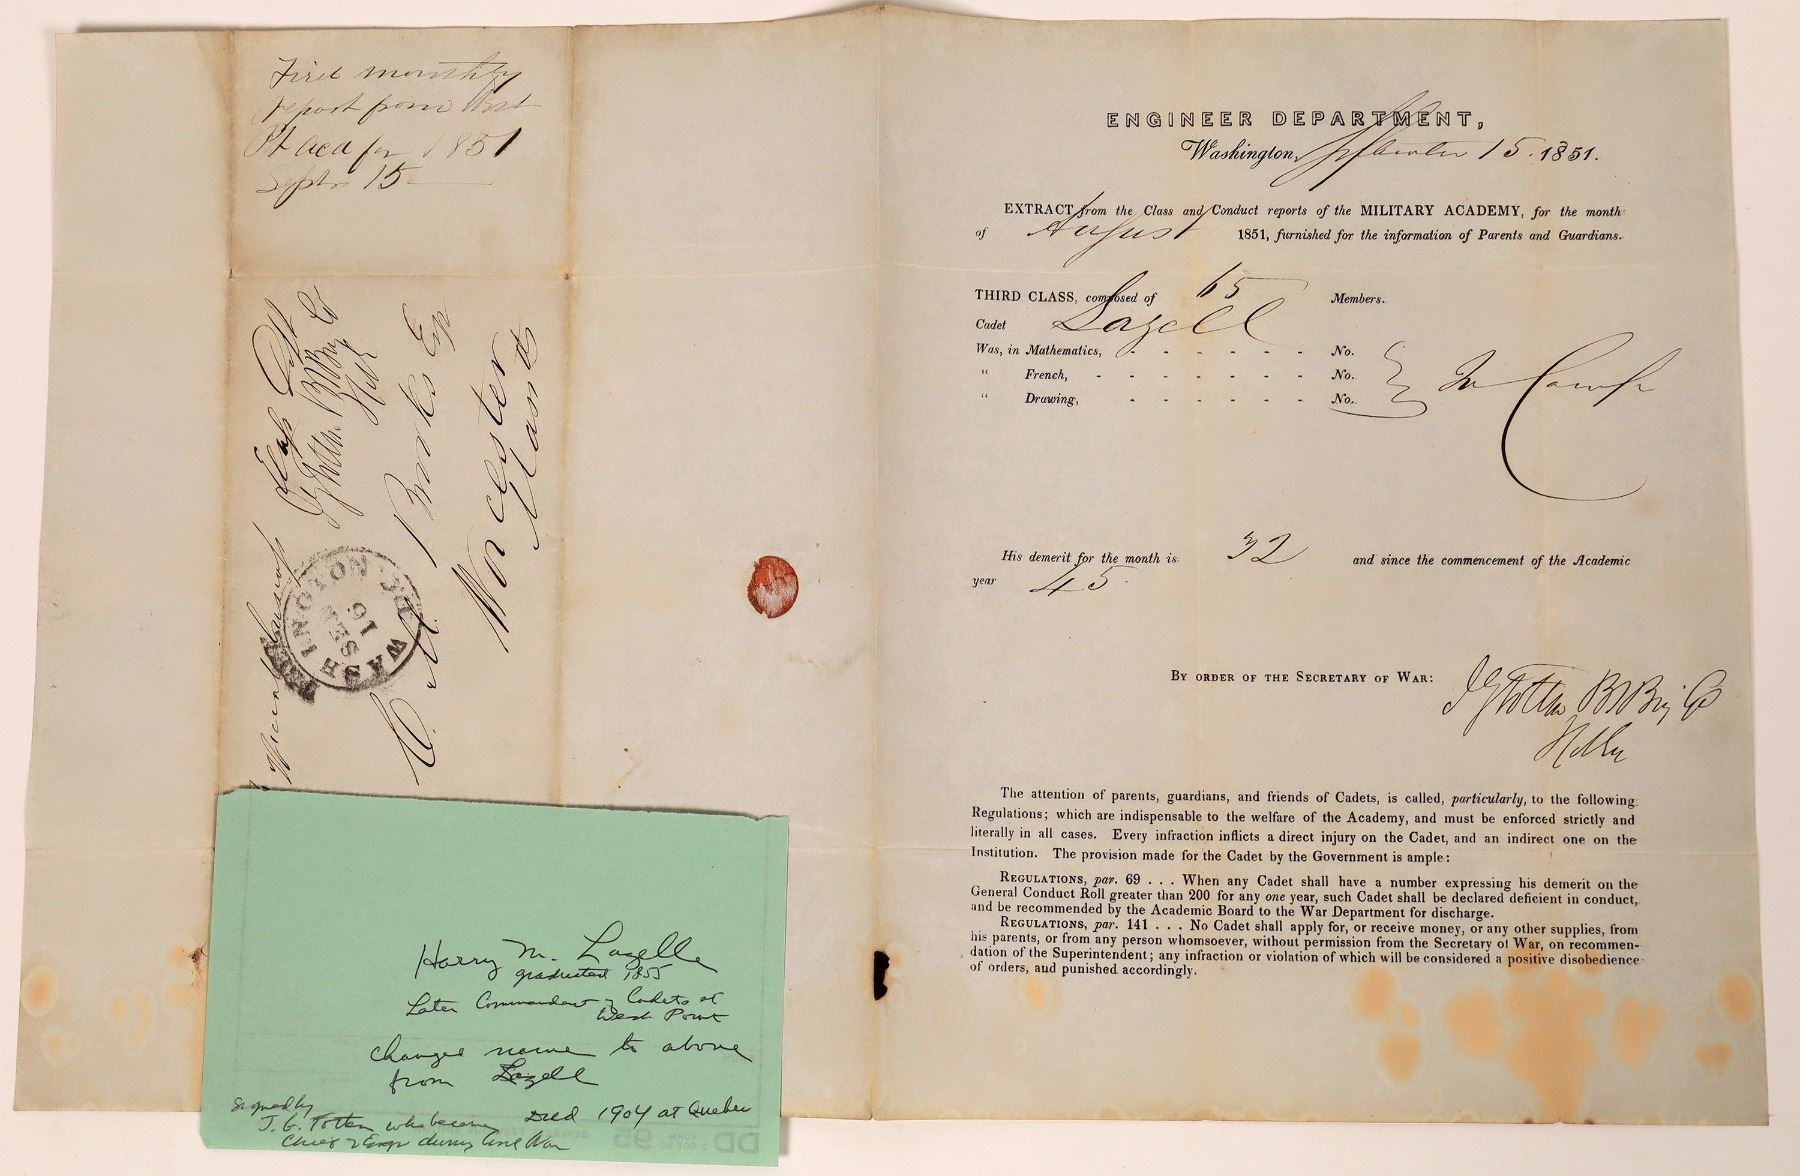 First monthly
report from West
Pt aca for 1851
Septr 15
J G Totten Bt Brig Gl
C. M. Brooks Esq
Worcester
Mass
WASHINGTON D.C.
SEP
16
ENGINEER DEPARTMENT,
Washington, September 15. 1851.
EXTRACT from the Class and Conduct reports of the MILITARY ACADEMY, for the month
of August 1851, furnished for the information of Parents and Guardians.
THIRD CLASS, composed of 65 Members.
Cadet Lazell
Was, in Mathematics, - - - - - - No.
“ French, - - - - - - - No. In Camp
“ Drawing, - - - - - - No.
His demerit for the month is 32 and since the commencement of the Academic
year 45.
BY ORDER OF THE SECRETARY OF WAR:
J G Totten Bt Brig Gl
The attention of parents, guardians, and friends of Cadets, is called, particularly, to the following
Regulations; which are indispensable to the welfare of the Academy, and must be enforced strictly and
literally in all cases. Every infraction inflicts a direct injury on the Cadet, and an indirect one on the
Institution. The provision made for the Cadet by the Government is ample:
REGULATIONS, par. 69 . . . When any Cadet shall have a number expressing his demerit on the
General Conduct Roll greater than 200 for any one year, such Cadet shall be declared deficient in conduct,
and be recommended by the Academic Board to the War Department for discharge.
REGULATIONS, par. 141 . . . No Cadet shall apply for, or receive money, or any other supplies, from
his parents, or from any person whomsoever, without permission from the Secretary of War, on recommen-
dation of the Superintendent; any infraction or violation of which will be considered a positive disobedience
of orders, and punished accordingly.
Harry M. Lazelle
graduated 1855
Later Commandant of Cadets at
West Point
changed name to above
from Lazell
Died 1904 at Quebec
Signed by
J. G. Totten who became
Chief of Engr during Civil War